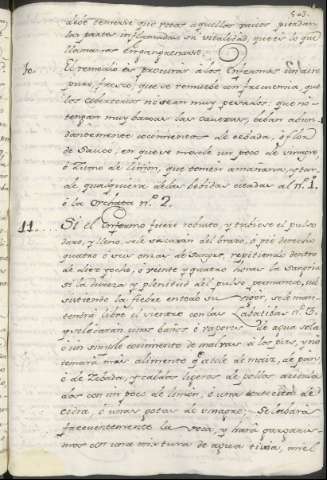 debe temerse que rotas aquellos vasos pierdan
las partes inflamadas su vitalidad, que es lo que
llamamos engangrenarse.
10. El remedio es procurar à los Enfermos un aire
puro, fresco, que se remuebe con frecuencia, que
los cobertores no sean muy pesados, que no
tengan muy baxas las cavezas, beban abun
dantemente cocimientos de cebada, ò flor
de Sauco, en que se mezcle un poco de vinagre,
ò Zumo de limon, que tomen mañana, y tar
de qualquiera de las bebidas citadas al nº. 1.
ò la Orchata nº. 2.
11. Si el Enfermo fuere robusto, y tubiere el pulso
duro, y lleno, se le sacaran del brazo, ò pie derecho
quatro ò seis onzas de Sangre, repitiendo dentro
de diez y ocho, ò veinte y quatro horas la sangria
si la dureza y plenitud del pulso permanece, sub
sistiendo la fiebre en todo su vigor, se le man
tendrá libre el vientre con las Labatibas nº. 5.
y se le darán unos baños ò vapores de agua sola
ò un simple cocimiento de malvas à los pies, y no
tomará mas alimento q. atole de maiz, de pan,
ò de Zebada, y caldos ligeros de pollos acidula
dos con un poco de limon, ò una
cidra, ò unas gotas de vinagre; Se labará
frecuentemente la voca, y hará gargaris
mos con una mixtura de agua tivia, miel